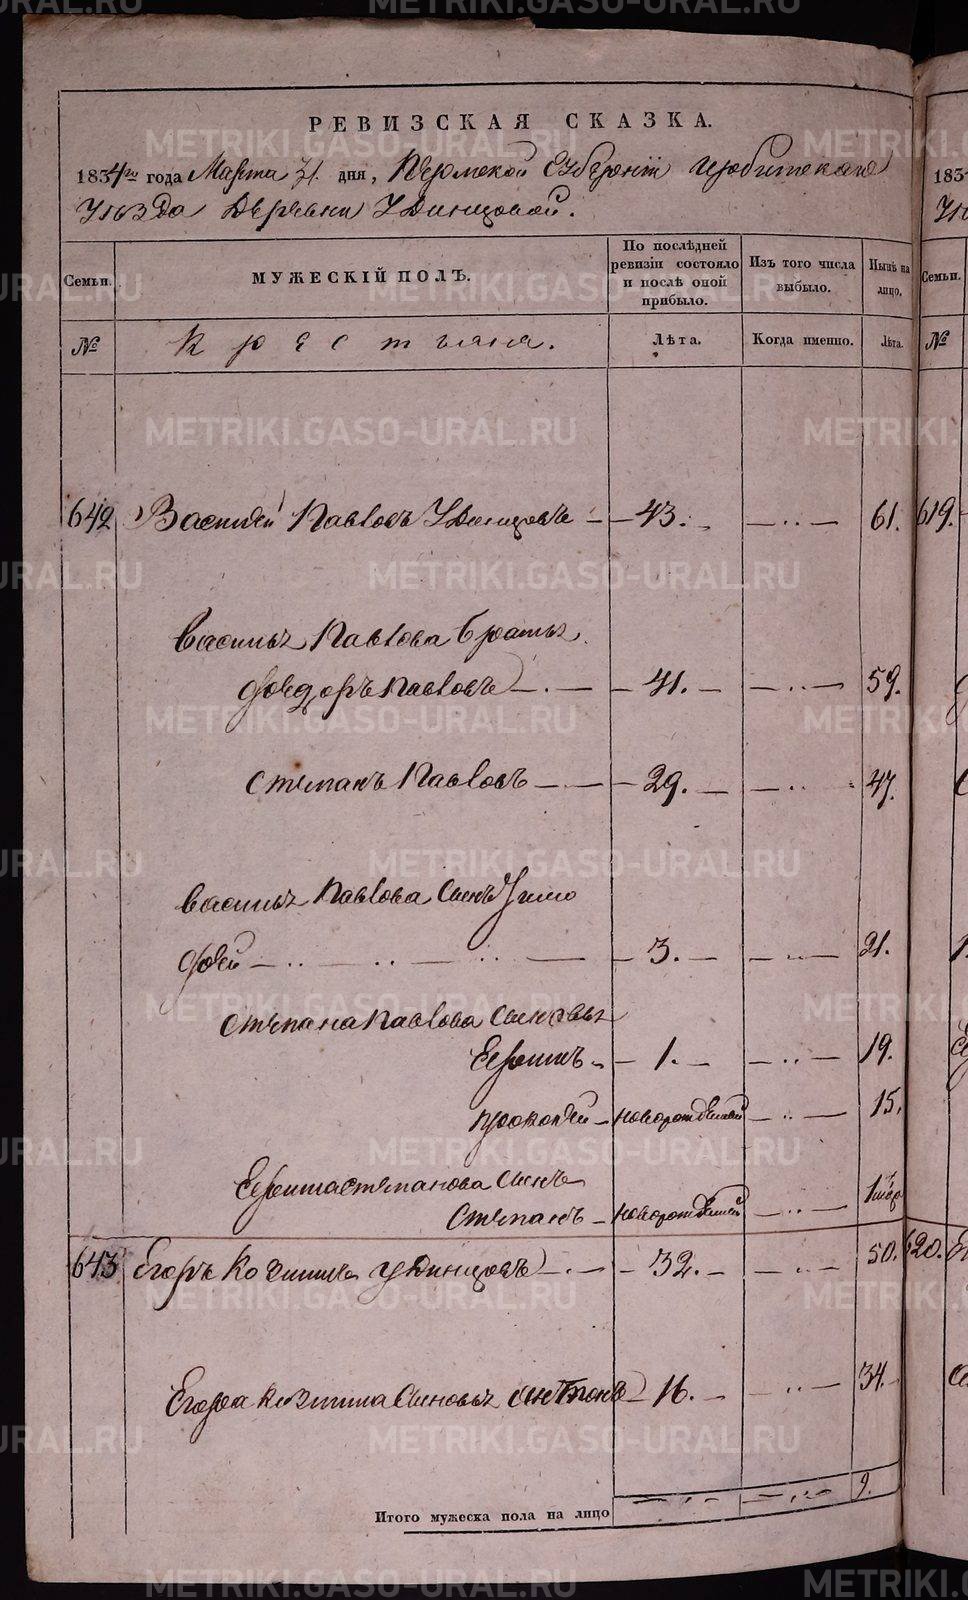 РЕВИЗСКАЯ СКАЗКА.
1834го года Марта 31. дня, Пермской Губернии Ирбитскаго
Уѣзда Деревни Удинцовой.
Семьи.
МУЖЕСКІЙ ПОЛЪ.
По послѣдней
ревизіи состояло
и послѣ оной
прибыло.
Изъ того числа
выбыло.
Нынѣ на
лицо.
№
Крестьяне.
Лѣта.
Когда именно.
Лѣта.
642 Василей Павловъ Удинцовъ 43. 61.
Василья Павлова братья
Федоръ Павловъ 41. 59.
Степанъ Павловъ 29. 47.
Василья Павлова сынъ Тимо
фей 3. 21.
Степана Павлова сыновья
Ефимъ 1. 19.
Прокопей новорожденный 15.
Ефима Степанова сынъ
Степанъ новорожденный
643 Егоръ Козминъ Удинцовъ 32. 50.
Егора Козмина сыновья Антонъ 16. 34.
Итого мужеска пола на лицо 9.
183
Семьи.
№
619.
620.
METRIKI.GASO-URAL.RU